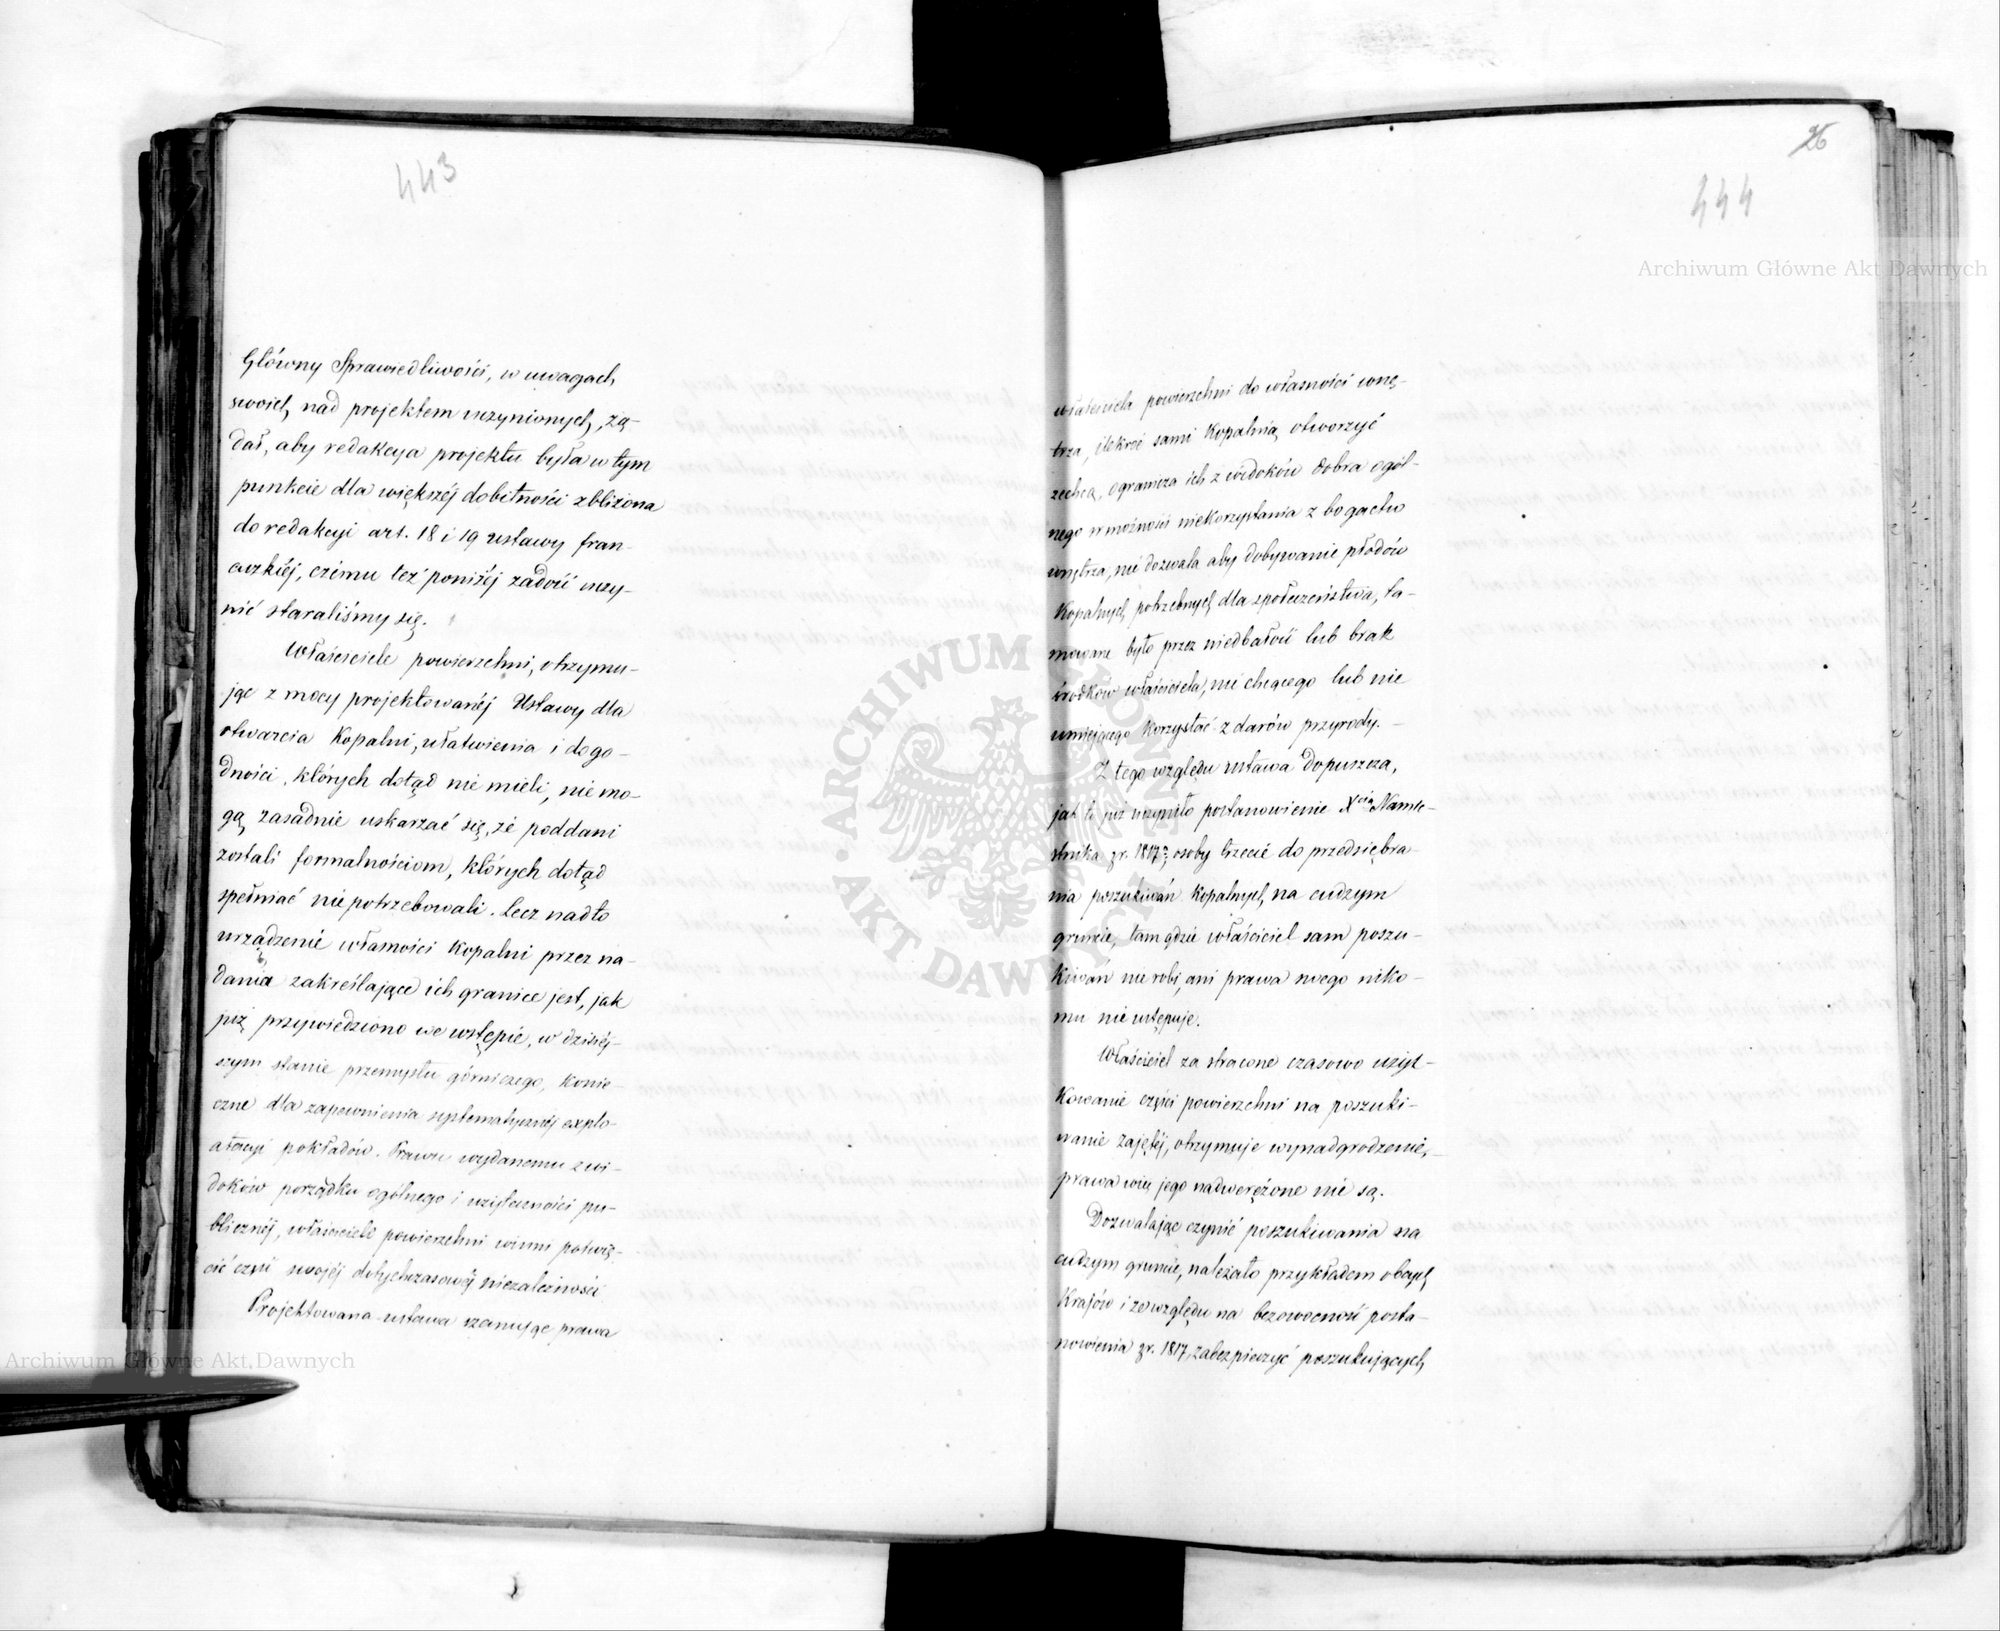 443
Główny Sprawiedliwości, w uwagach
swoich nad projektem uczynionych, żą-
dał, aby redakcya projektu była w tym
punkcie dla większéj dobitności zbliżona
do redakcyi art. 18 i 19 ustawy fran-
cuzkiéj, czému też poniżéj zadość uczy-
nić staraliśmy się.
Właściciele powierzchni, otrzymu-
jąc z mocy projektowanéj Ustawy dla
otwarcia Kopalni, ułatwienia i dogo-
dności, których dotąd nie mieli, nie mo-
gą zasadnie uskarzać się, że poddani
zostali formalnościom, których dotąd
spełniać nie potrzebowali. Lecz nadto
urządzenie własności Kopalni przez na-
dania zakreślające ich granice jest, jak
już przywiedziono we wstępie, w dzisiéj-
szym stanie przemysłu górniczego, konie-
czne dla zapewnienia systematycznéj explo-
atacyi pokładów. Prawu wydanemu z wi-
doków porządku ogólnego i użyteczności pu-
blicznéj, właściciele powierzchni winni poświę-
cić część swojéj dotychczasowéj niezależności
Projektowana ustawa szanując prawa
26
444
Archiwum Główne Akt Dawnych
właściciela powierzchni do własności wnę-
trza, ilekroć sami Kopalnią otworzyć
zechcą, ogranicza ich z widoków dobra ogól-
nego w możności niekorzystania z bogactw
wnętrza, nie dozwala aby dobywanie płodów
Kopalnych potrzebnych dla społeczeństwa, ta-
mowane było przez niedbałość lub brak
środków właściciela, nie chcącego lub nie
umiejącego Korzystać z darów przyrody. -
Z tego względu ustawa dopuszcza,
jak to już uczyniło postanowienie Xcia Namie-
stnika z r. 1817, osoby trzecie do przedsiębra-
nia poszukiwań Kopalnych na cudzym
gruncie, tam gdzie właściciel sam poszu-
kiwań nie robi, ani prawa swego niko-
mu nie ustępuje.
Właściciel za stracone czasowo użyt-
Kowanie części powierzchni na poszuki-
wanie zajętéj, otrzymuje wynadgrodzenie, -
prawa więc jego nadwerężone nie są.
Dozwalając czynić poszukiwania na
cudzym gruncie, należało przykładem obcych
Krajów i ze względu na bezowocność posta-
nowienia z r. 1817, zabezpieczyć poszukujących
Archiwum Główne Akt Dawnych
ARCHIWUM GŁÓWNE AKT DAWNYCH